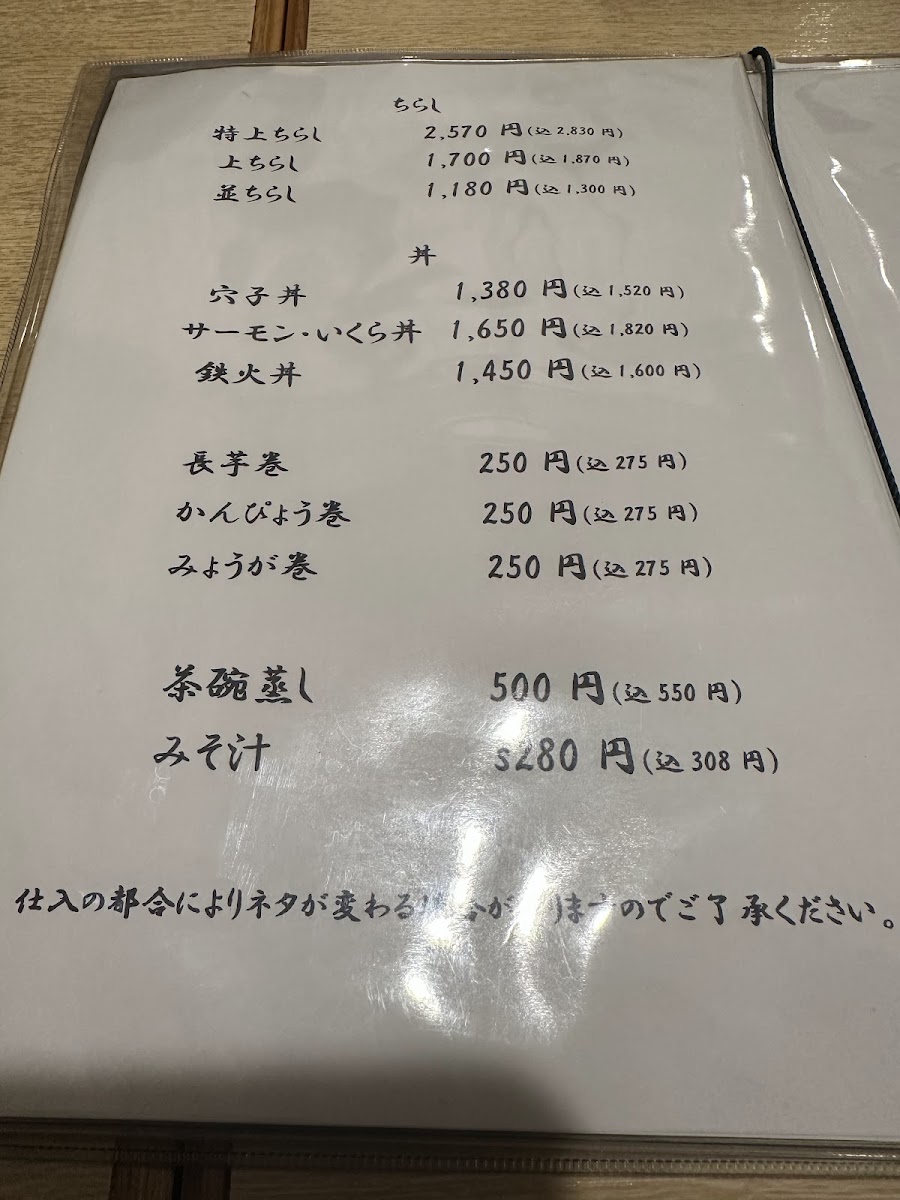 ちらし
特上ちらし 2,570 円(込 2,830 円)
上ちらし 1,700 円(込 1,870 円)
並ちらし 1,180 円(込 1,300 円)
丼
穴子丼 1,380 円(込 1,520 円)
サーモン・いくら丼 1,650 円(込 1,820 円)
鉄火丼 1,450 円(込 1,600 円)
長芋巻 250 円(込 275 円)
かんぴょう巻 250 円(込 275 円)
みょうが巻 250 円(込 275 円)
茶碗蒸し 500 円(込 550 円)
みそ汁 s280 円(込 308 円)
仕入の都合によりネタが変わる場合がありますのでご了承ください。